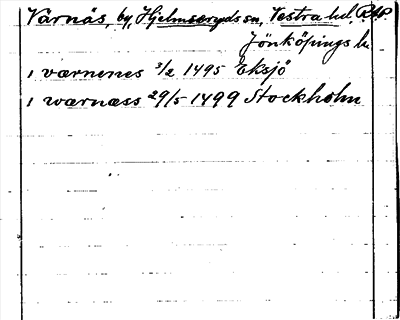 Varnäs, by, Hjelmseryds sn, Vestra hd RAP.
Jönköpings l.
i værnenes 3/2 1495 Eksjö
i warnæss 29/5 1499 Stockholm